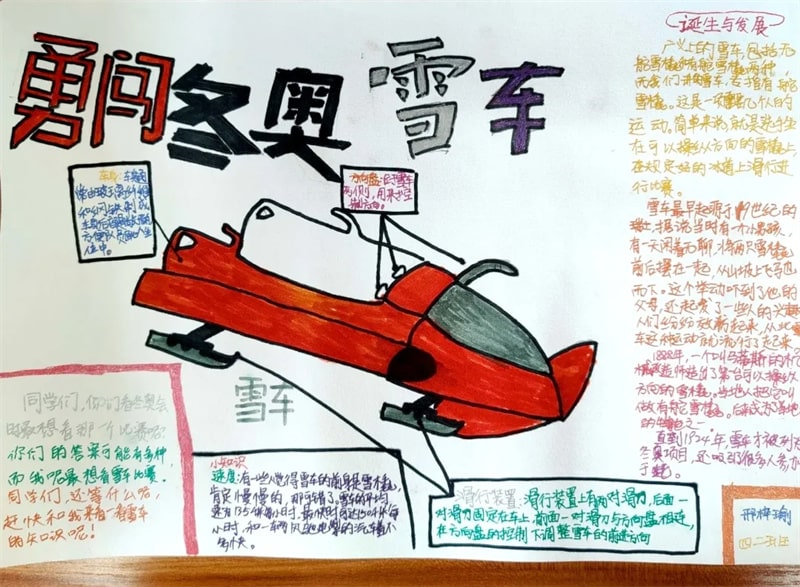 勇闯冬奥雪车
诞生与发展
广义上的雪车包括无
舵雪橇和有舵雪橇两种,
而我们讲雪车,专指有舵
雪橇。这是一项
运动。简单来说,就是选手坐
在可以操纵方向的雪橇上,
在规定好的冰道上滑行进
行比赛。
雪车最早起源于19世纪的
瑞士,据说当时有一个小男孩,
有一天闲着无聊,将两只雪橇
前后摆在一起,从山坡上飞驰
而下。这个举动吓到了他的
父母,还起发了一些人的兴趣
人们纷纷效仿起来,从此雪
车这种运动就流行了起来。
1888年,一个叫
方向的雪橇。当地人把它叫
做有舵雪橇。后
的 之一
直到1924年,雪车才被列为
冬奥项目,还吸引很多人参加
车身:车身
和
车身后
方便队员
方向盘:位于雪车
两侧,用来控
制方向。
雪车
同学们,你们看冬奥会
时最想看那个比赛呢?
你们的答案可能有多种,
而我呢最想看雪车比赛。
同学们,还等什么呢,
赶快和我来看一看雪车
的知识呢!
小知识
速度:有一些人觉得雪车的前身是雪橇,
肯定慢慢的,那可错了,雪车的平均
速度135千米每小时,最快时可达150千米每
小时,和一辆风驰电掣的汽车差不
多快。
滑行装置:滑行装置上有两对滑刃,后面一
对滑刃固定在车上,前面一对滑刃与方向盘相连,
在方向盘的控制下调整雪车的前进方向
四、二班